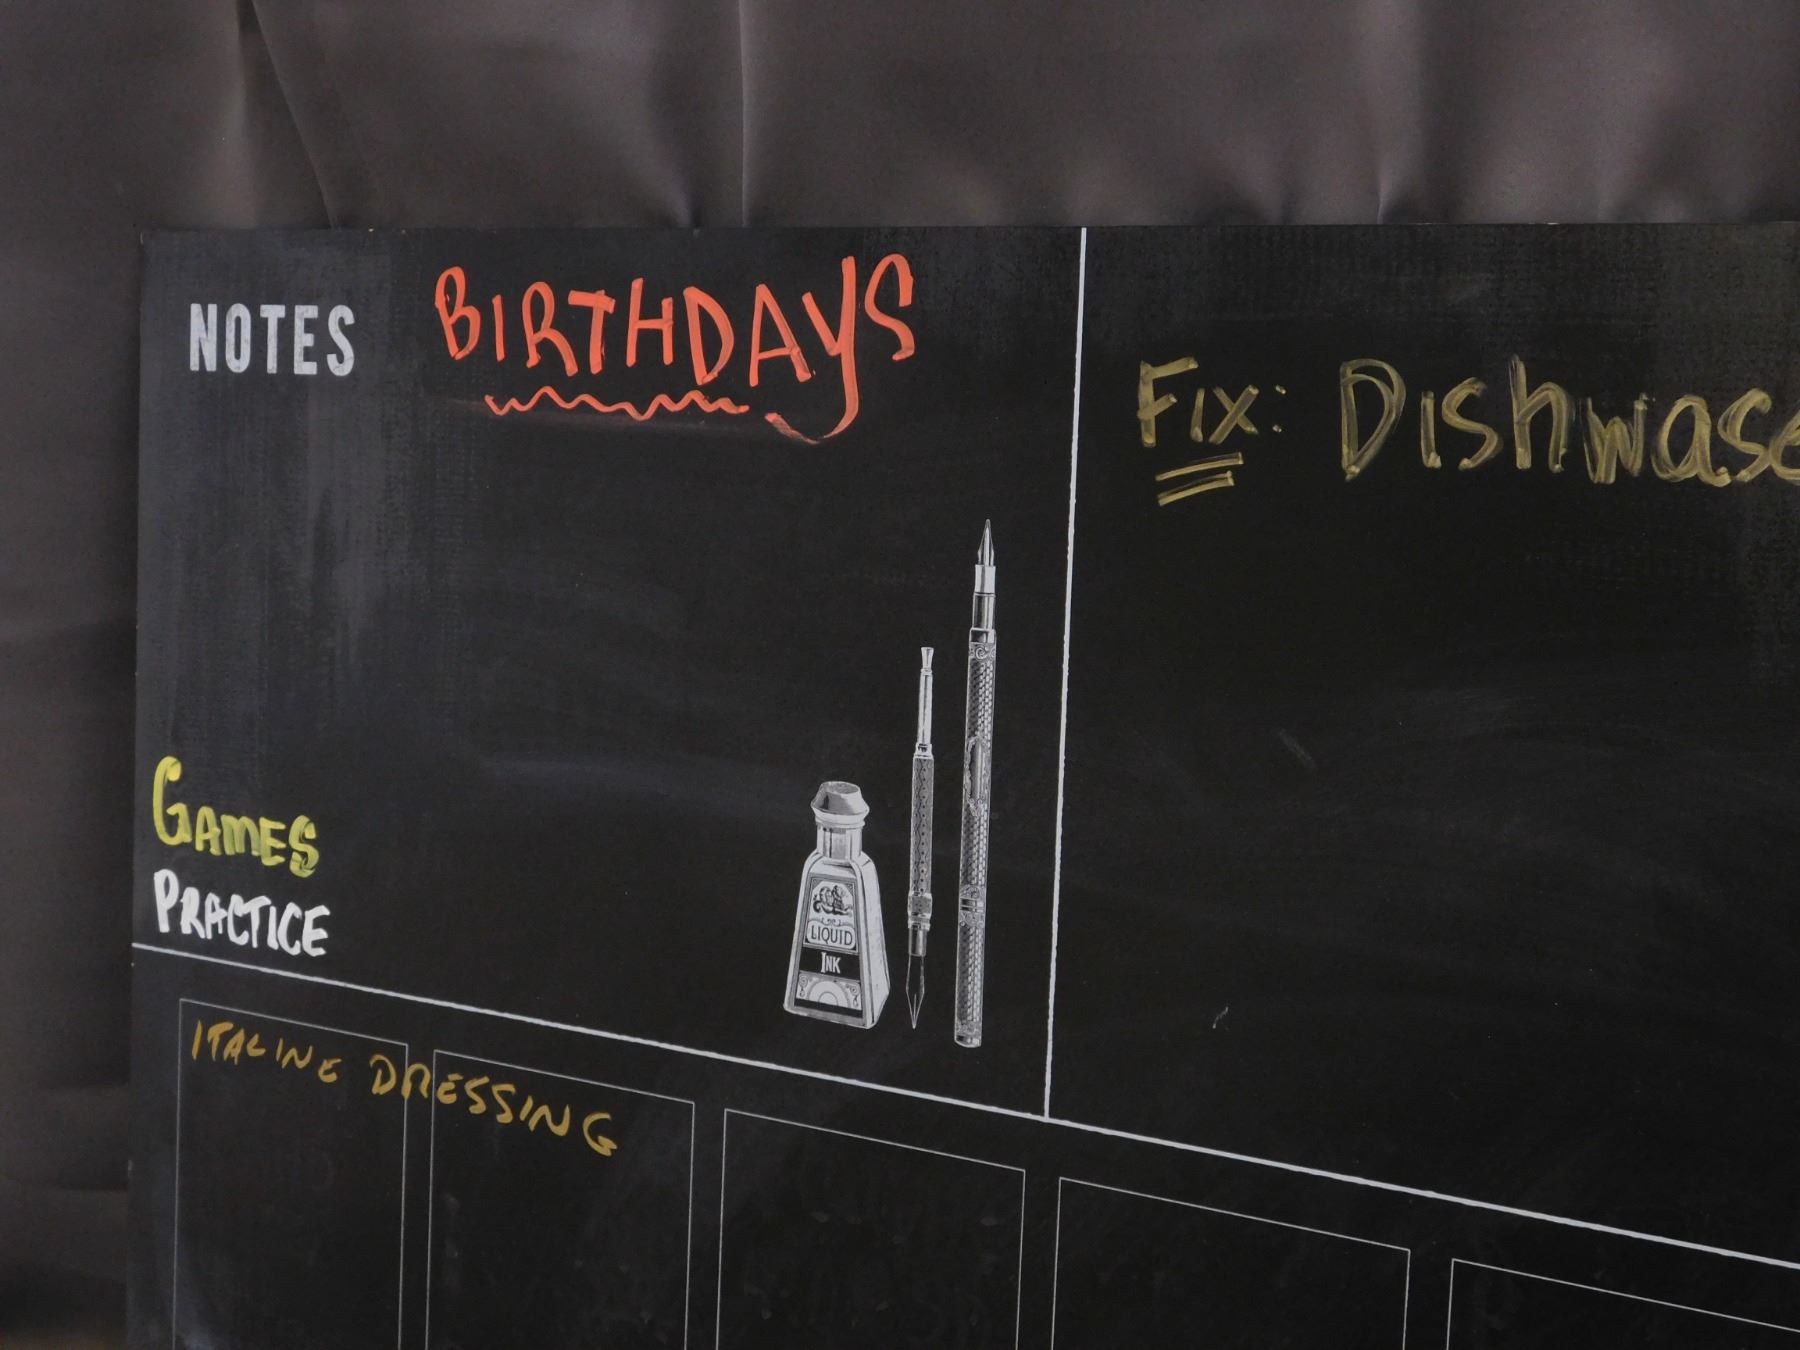 NOTES BIRTHDAYS
FIX: DIShwase
GAMES
PRACTICE
LIQUID
INK
ITALINE DRESSING